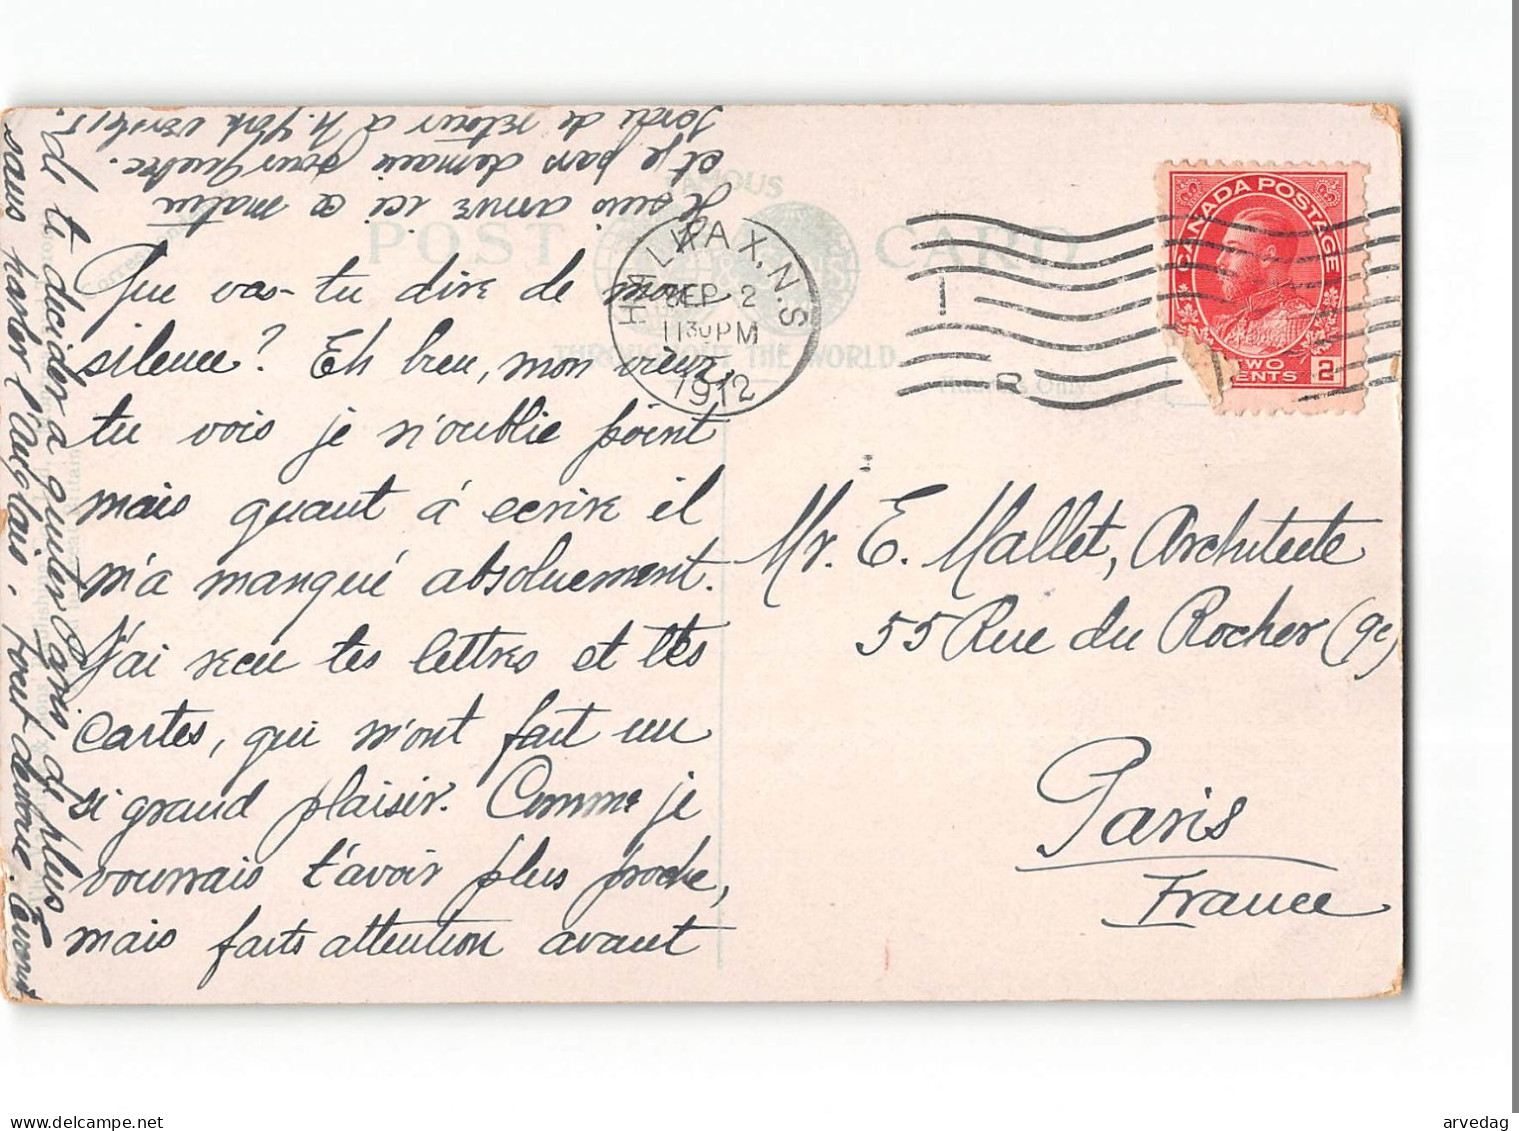 Que vas-tu dire de mon
silence? Eh bien, mon vieux,
tu vois je n'oublie point
mais quant à ecrire il
m'a manqué absoluement.
J'ai recu tes lettres et tes
cartes, qui m'ont fait un
si grand plaisir. Comme je
vourrais t'avoir plus proche,
mais faits attention avant
de te decider a quiter Paris de plus
sans parler l'Anglais,
Je suis arrivé ici ce matin
et je pars demain pour Quebec.
de retour à N. York vers le 15.
POST CARD
FAMOUS
THROUGHOUT THE WORLD
HALIFAX, N.S.
SEP 2
11 30 PM
1912
CANADA POSTAGE
TWO CENTS 2
Mr. E. Mallet, Architecte
55 Rue du Rocher (9e)
Paris
France
arvedag